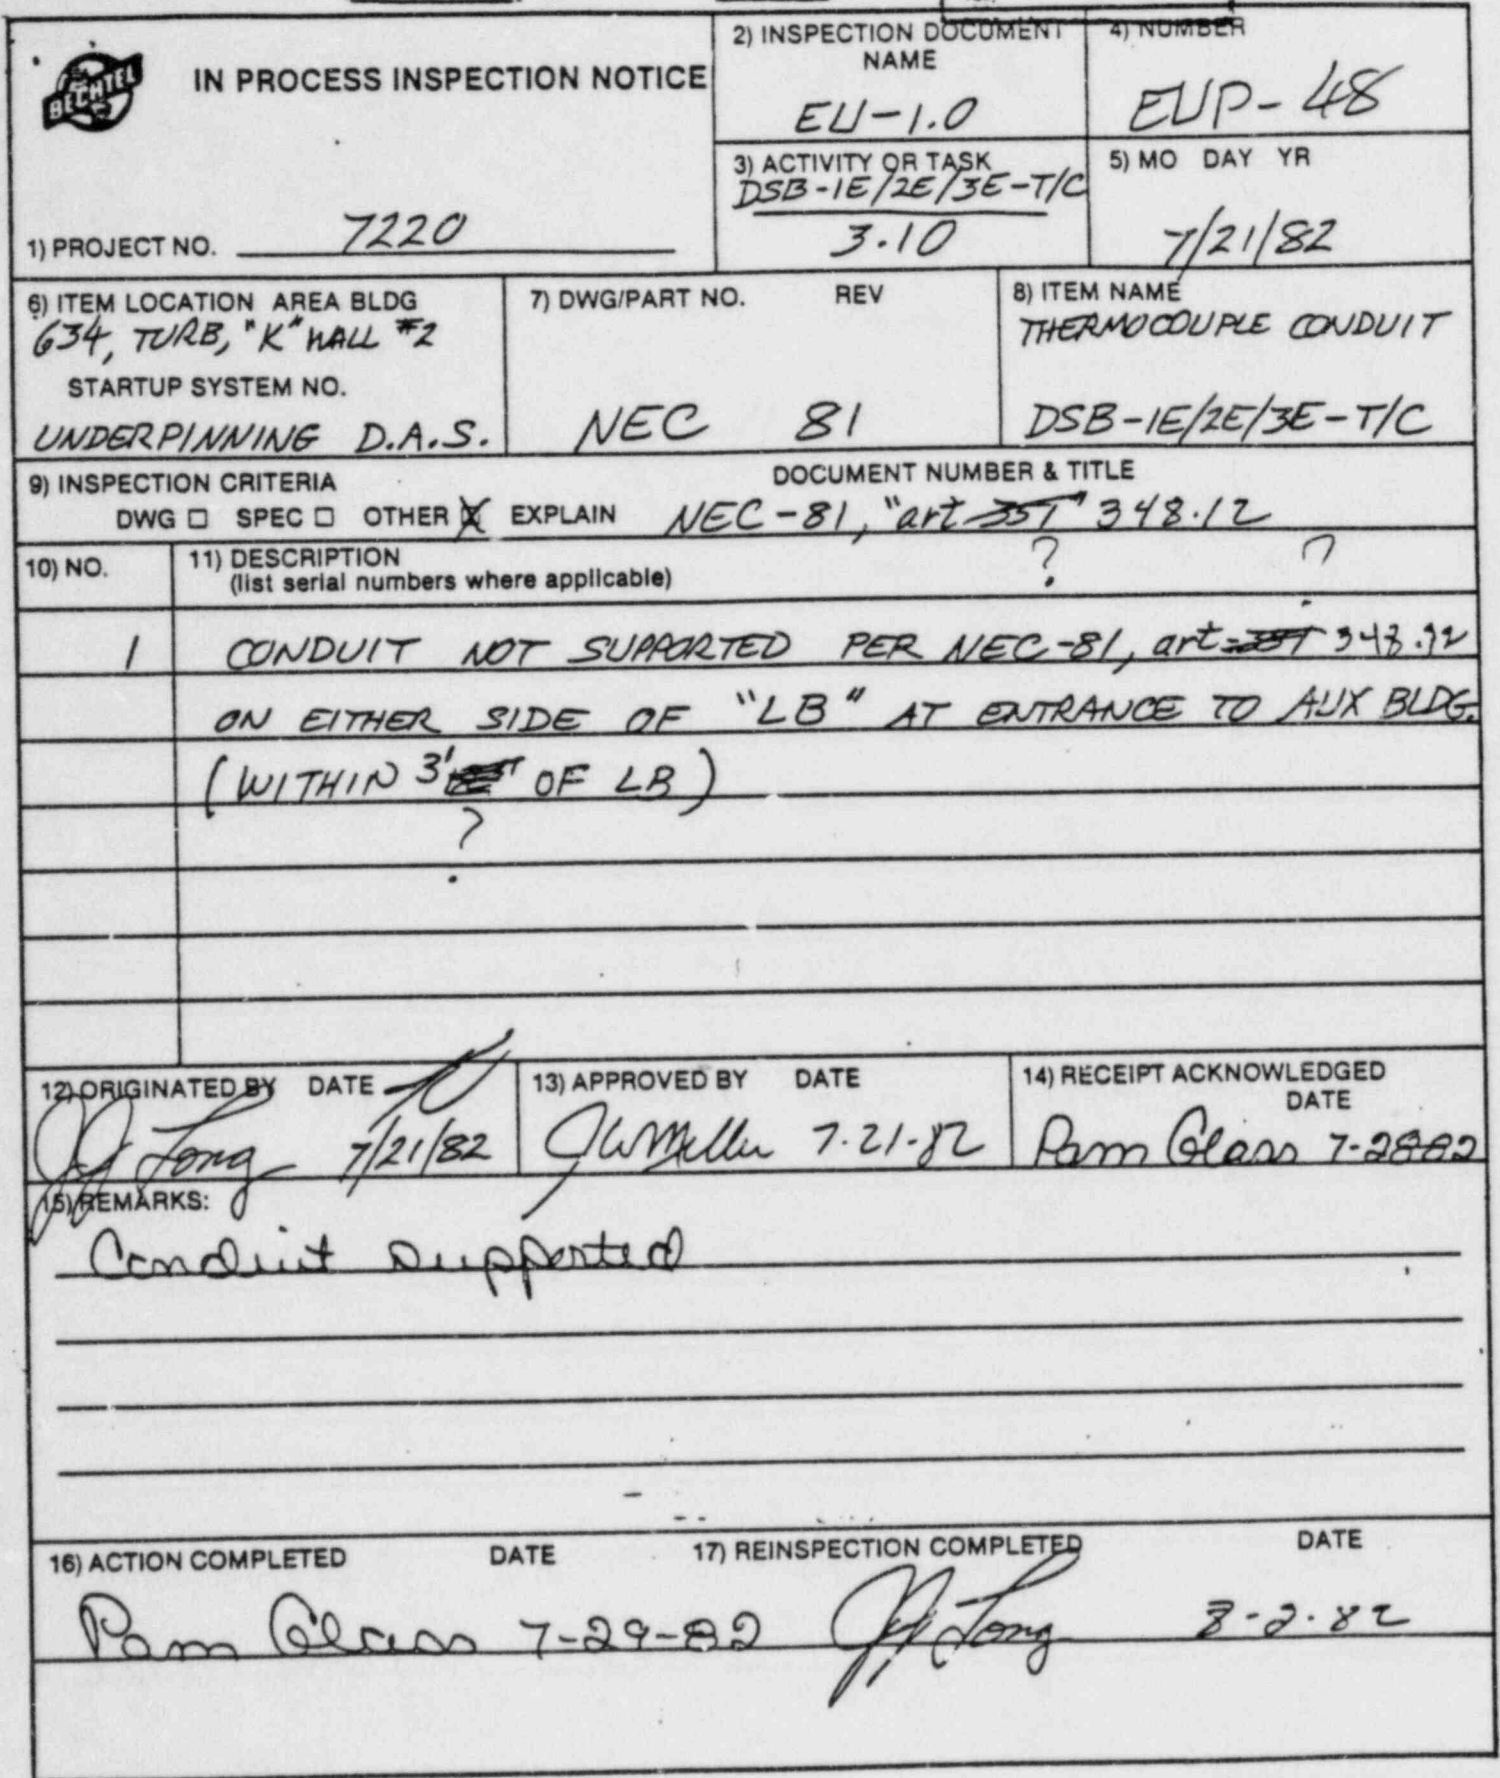 BECHTEL
IN PROCESS INSPECTION NOTICE
1) PROJECT NO. 7220
2) INSPECTION DOCUMENT
NAME
EU-1.0
4) NUMBER
EUP-48
3) ACTIVITY OR TASK
DSB-1E/2E/3E-T/C
3.10
5) MO DAY YR
7/21/82
6) ITEM LOCATION AREA BLDG
634, TURB, "K" WALL #2
STARTUP SYSTEM NO.
UNDERPINNING D.A.S.
7) DWG/PART NO. REV
NEC 81
8) ITEM NAME
THERMOCOUPLE CONDUIT
DSB-1E/2E/3E-T/C
9) INSPECTION CRITERIA DOCUMENT NUMBER & TITLE
DWG ☐ SPEC ☐ OTHER ☒ EXPLAIN NEC-81, "art 351" 348.12
10) NO. 11) DESCRIPTION ? ?
(list serial numbers where applicable)
1 CONDUIT NOT SUPPORTED PER NEC-81, art 351 348.12
ON EITHER SIDE OF "LB" AT ENTRANCE TO AUX BLDG.
(WITHIN 3' OF LB)
?
12) ORIGINATED BY DATE
JJ Long 7/21/82
13) APPROVED BY DATE
JW Miller 7-21-82
14) RECEIPT ACKNOWLEDGED
DATE
Pam Glass 7-28-82
15) REMARKS:
Conduit supported
16) ACTION COMPLETED DATE
Pam Glass 7-29-82
17) REINSPECTION COMPLETED DATE
JJ Long 8-2-82